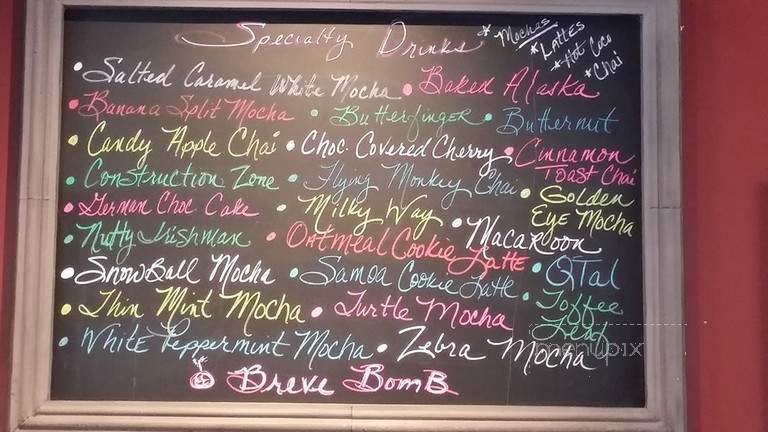 Specialty Drinks * Mochas
* Lattes
* Hot Coco
* Chai
• Salted Caramel White Mocha • Baked Alaska
• Banana Split Mocha • Butterfinger • Butternut
• Candy Apple Chai • Choc. Covered Cherry • Cinnamon Toast Chai
• Construction Zone • Flying Monkey Chai • Golden Eye Mocha
• German Choc Cake • Milky Way • Macaroon
• Nutty Irishman • Oatmeal Cookie Latte • QTal
• SnowBall Mocha • Samoa Cookie Latte • Toffee
• Thin Mint Mocha • Turtle Mocha
• White Peppermint Mocha • Zebra Mocha
Breve BomB
menupix